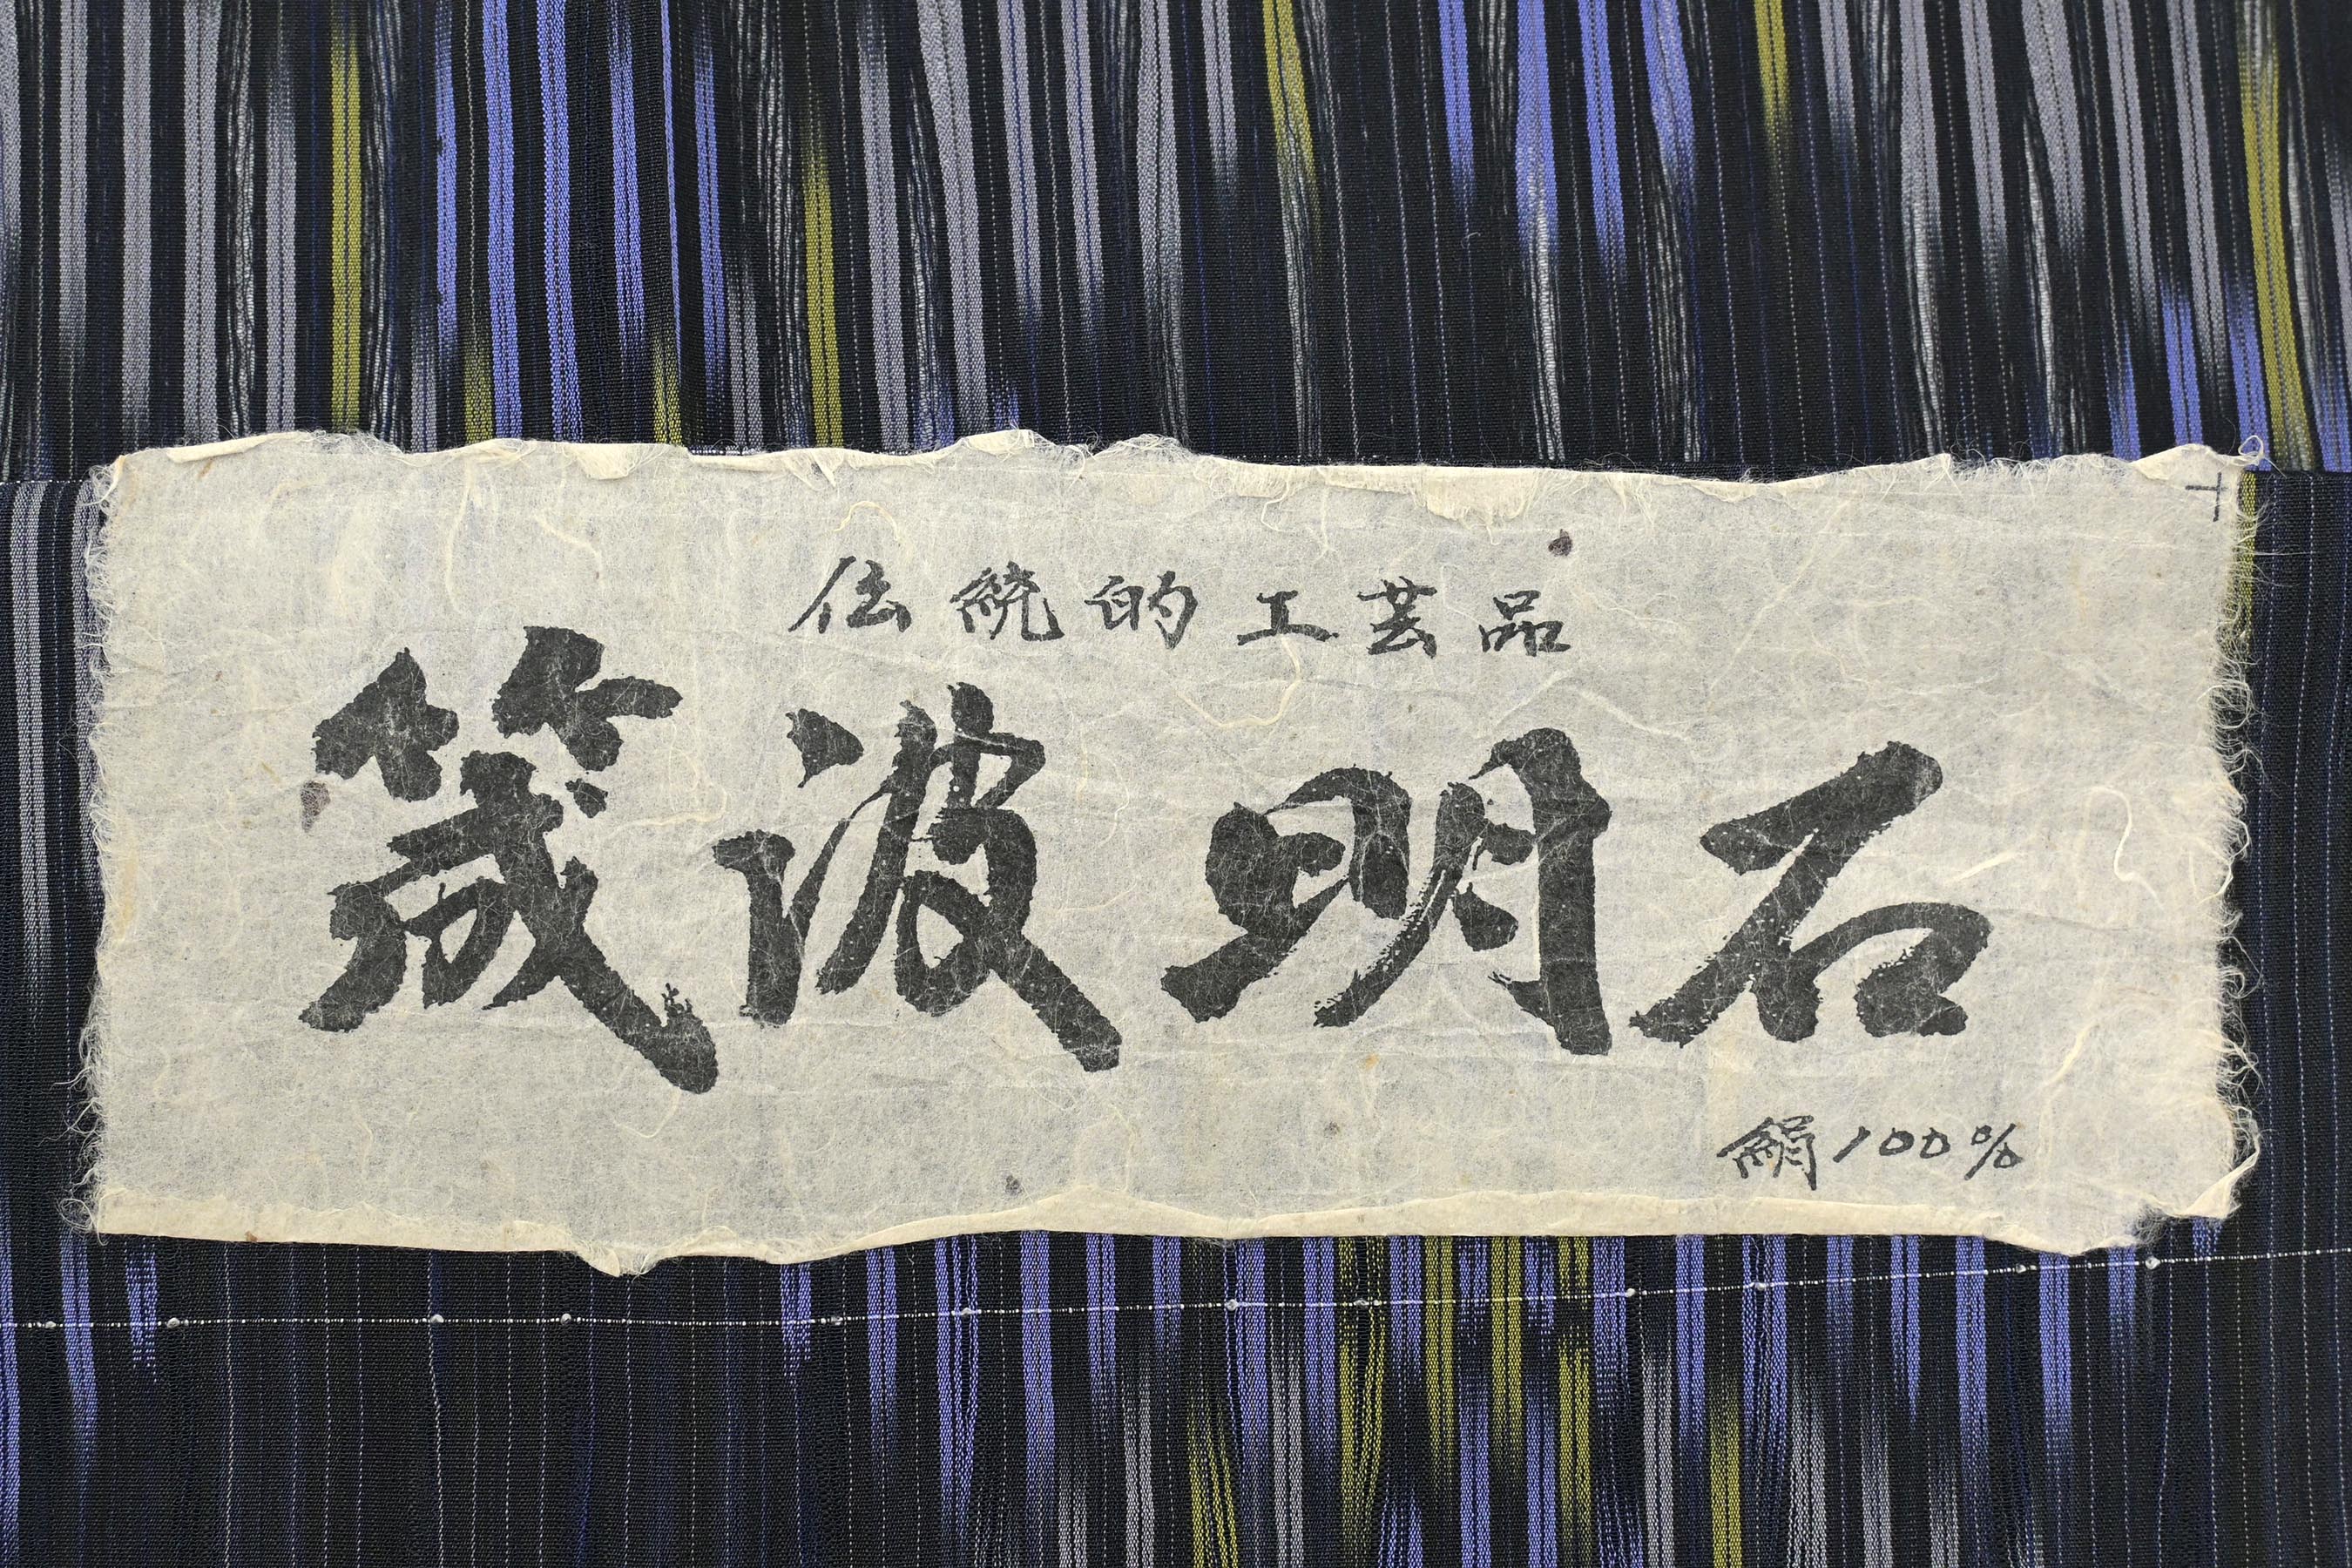 伝統的工芸品
筬波明石
絹100%